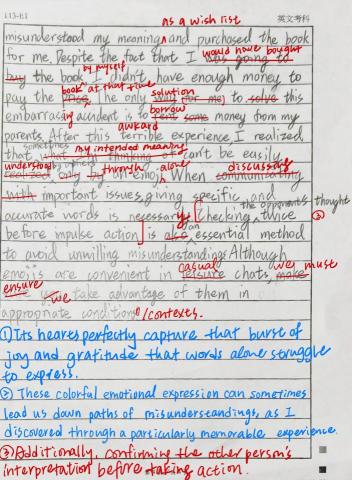 113-E1 英文考科
as a wish list
misunderstood my meaning, and purchased the book
for me. Despite the fact that I was going to would have bought
buy the book by myself, I didn't have enough money to
pay the price book at that time. The only way for me solution to solve this
embarrassing accident is to rent some borrow money from my
parents. After this awkard terrible experience, I realized
that sometimes what my intended meaning can't be easily
understood realized only by through emoji alone. When communicating discussing
with important issues, giving specific and
accurate words is necessary. Checking twice the opponent's thought
before impulse action is also an essential method ③
to avoid unwilling misunderstanding. Although
emojis are convenient in leisure casual chats, make we must
ensure we take advantage of them in
appropriate conditions/contexts.
① Its hearts perfectly capture that burst of
joy and gratitude that words alone struggle
to express.
② These colorful emotional expression can sometimes
lead us down paths of misunderstandings, as I
discovered through a particularly memorable experience.
③ Additionally, confirming the other person's
interpretation before taking action.